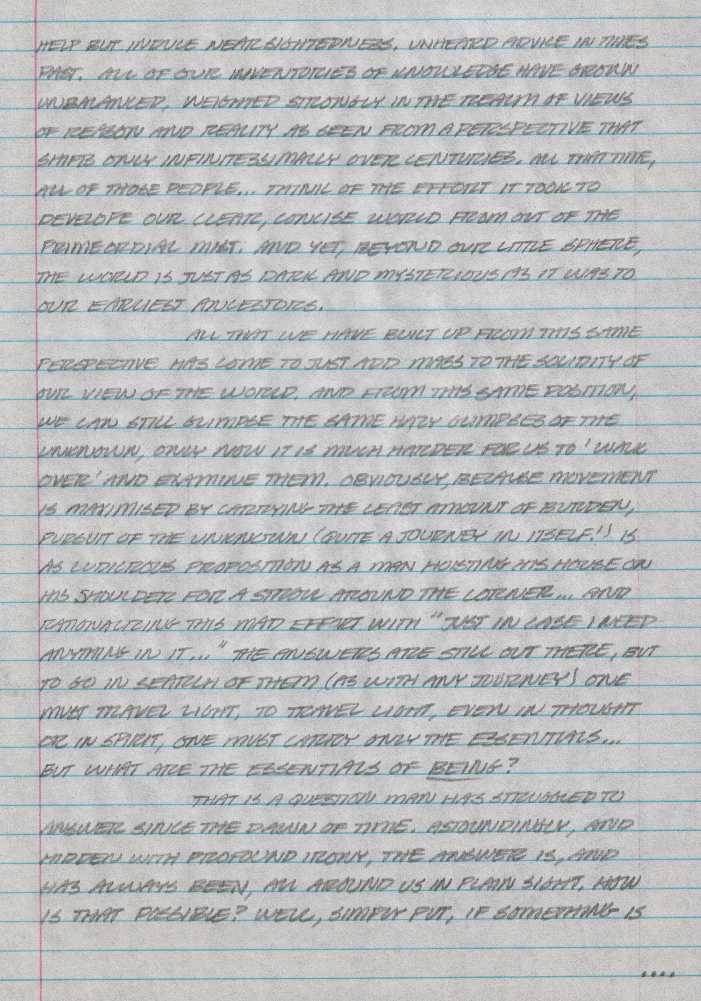 HELP BUT INDUCE NEARSIGHTEDNESS. UNHEARD ADVICE IN TIMES
PAST. ALL OF OUR INVENTORIES OF KNOWLEDGE HAVE GROWN
UNBALANCED, WEIGHTED STRONGLY IN THE REALM OF VIEWS
OF REASON AND REALITY AS SEEN FROM A PERSPECTIVE THAT
SHIFTS ONLY INFINITESSIMALLY OVER CENTURIES. ALL THAT TIME,
ALL OF THOSE PEOPLE... THINK OF THE EFFORT IT TOOK TO
DEVELOPE OUR CLEAR, CONCISE WORLD FROM OUT OF THE
PRIMEORDIAL MIST. AND YET, BEYOND OUR LITTLE SPHERE,
THE WORLD IS JUST AS DARK AND MYSTERIOUS AS IT WAS TO
OUR EARLIEST ANCESTORS.
ALL THAT WE HAVE BUILT UP FROM THIS SAME
PERSPECTIVE HAS COME TO JUST ADD MASS TO THE SOLIDITY OF
OUR VIEW OF THE WORLD. AND FROM THIS SAME POSITION,
WE CAN STILL GLIMPSE THE SAME HAZY GLIMPSES OF THE
UNKNOWN, ONLY NOW IT IS MUCH HARDER FOR US TO 'WALK
OVER' AND EXAMINE THEM. OBVIOUSLY, BECAUSE MOVEMENT
IS MAXIMISED BY CARRYING THE LEAST AMOUNT OF BURDEN,
PURSUIT OF THE UNKNOWN (QUITE A JOURNEY IN ITSELF!) IS
AS LUDICROUS PROPOSITION AS A MAN HOISTING HIS HOUSE ON
HIS SHOULDER FOR A STROLL AROUND THE CORNER... AND
RATIONALIZING THIS MAD EFFORT WITH "JUST IN CASE I NEED
ANYTHING IN IT..." THE ANSWERS ARE STILL OUT THERE, BUT
TO GO IN SEARCH OF THEM (AS WITH ANY JOURNEY) ONE
MUST TRAVEL LIGHT. TO TRAVEL LIGHT, EVEN IN THOUGHT
OR IN SPIRIT, ONE MUST CARRY ONLY THE ESSENTIALS...
BUT WHAT ARE THE ESSENTIALS OF BEING?
THAT IS A QUESTION MAN HAS STRUGGLED TO
ANSWER SINCE THE DAWN OF TIME. ASTOUNDINGLY, AND
HIDDEN WITH PROFOUND IRONY, THE ANSWER IS, AND
HAS ALWAYS BEEN, ALL AROUND US IN PLAIN SIGHT. HOW
IS THAT POSSIBLE? WELL, SIMPLY PUT, IF SOMETHING IS
....